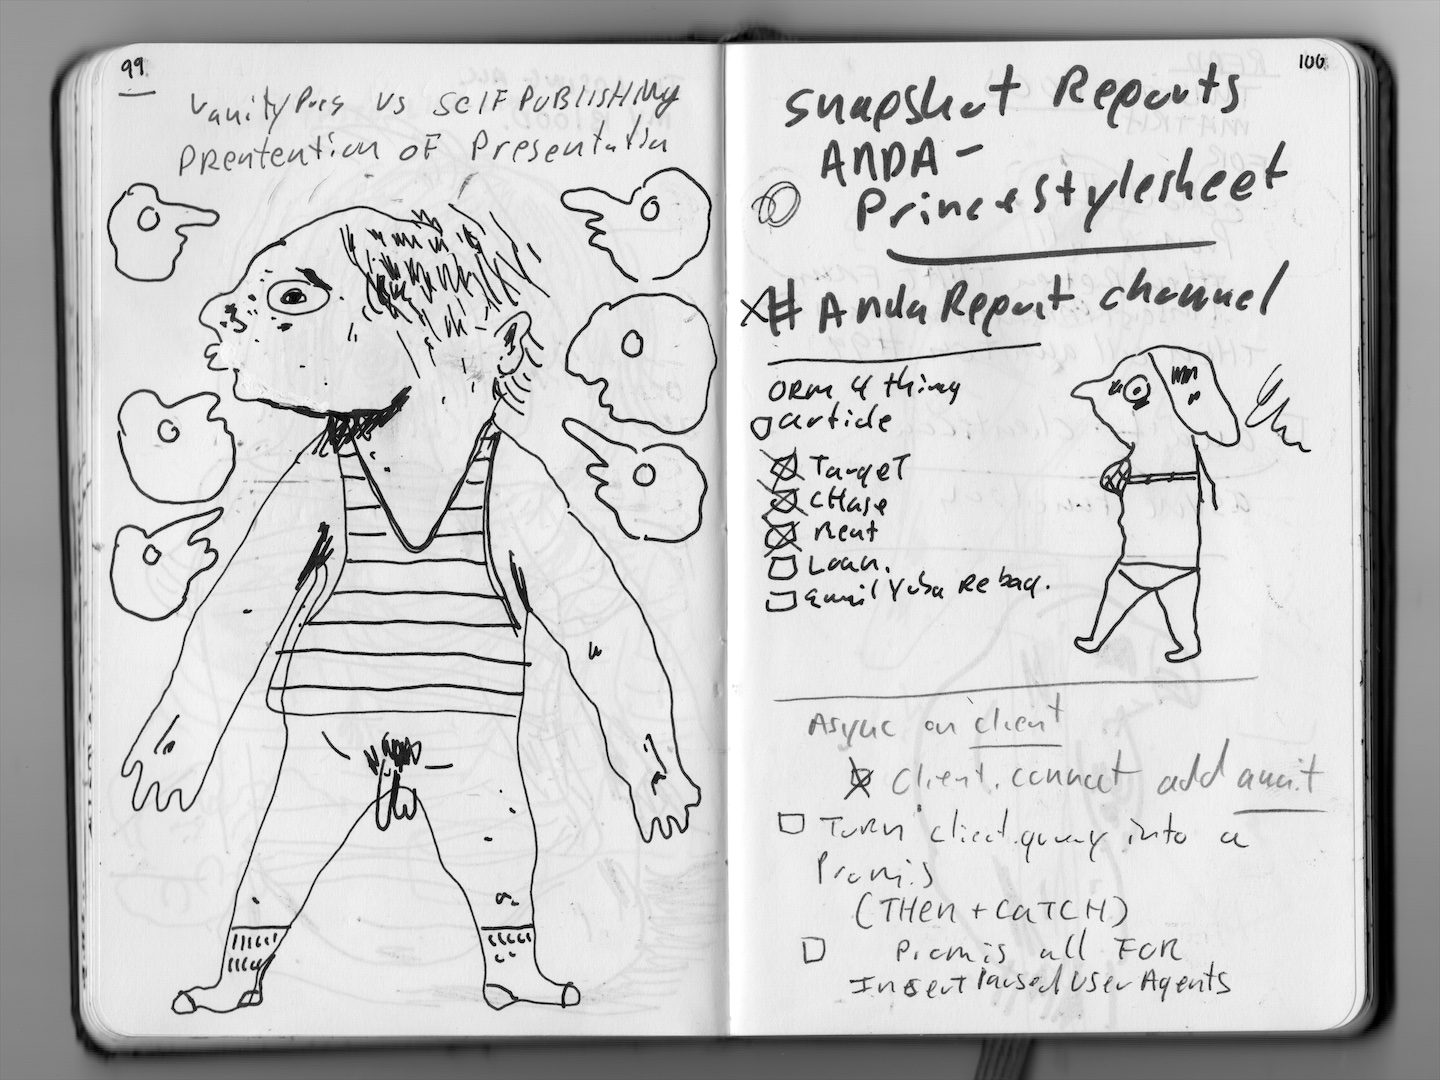 99
Vanity Pres vs SelF PuBlisHing
Prentention oF Presentatin
100
Snapshot Reports
ANDA -
Prince + Stylesheet
# Anda Report channel
ORM 4 thing
article
TargeT
cHase
Meat
Loan.
Email Yuba Re baq.
Async on client
Client.connect add await
Turn client.query into a
Promis
(THen + CaTCH)
Promis all FOR
Insert Parsed User Agents